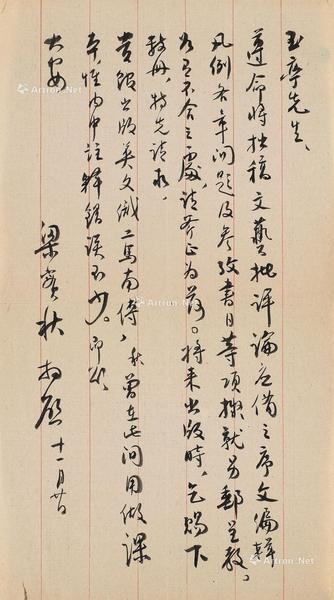 玉亭先生、
遵命将拙稿文艺批评论应备之序文编辑
凡例各章问题及参考书目等项撰就另邮呈教。
如有不合之处，请斧正为荷。将来出版时，乞赐下
数册，特先请求。
贵馆出版英文傲工马南传，秋曾在此间用做课
本，惟内中注解错误不少。即颂
大安
梁实秋 拜启 十一月廿日
Artron.Net